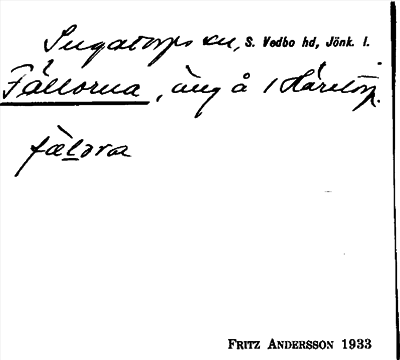 Ingatorps sn, S. Vedbo hd, Jönk. l.
Fällorna, äng å 1 Håretorp.
fælora
FRITZ ANDERSSON 1933